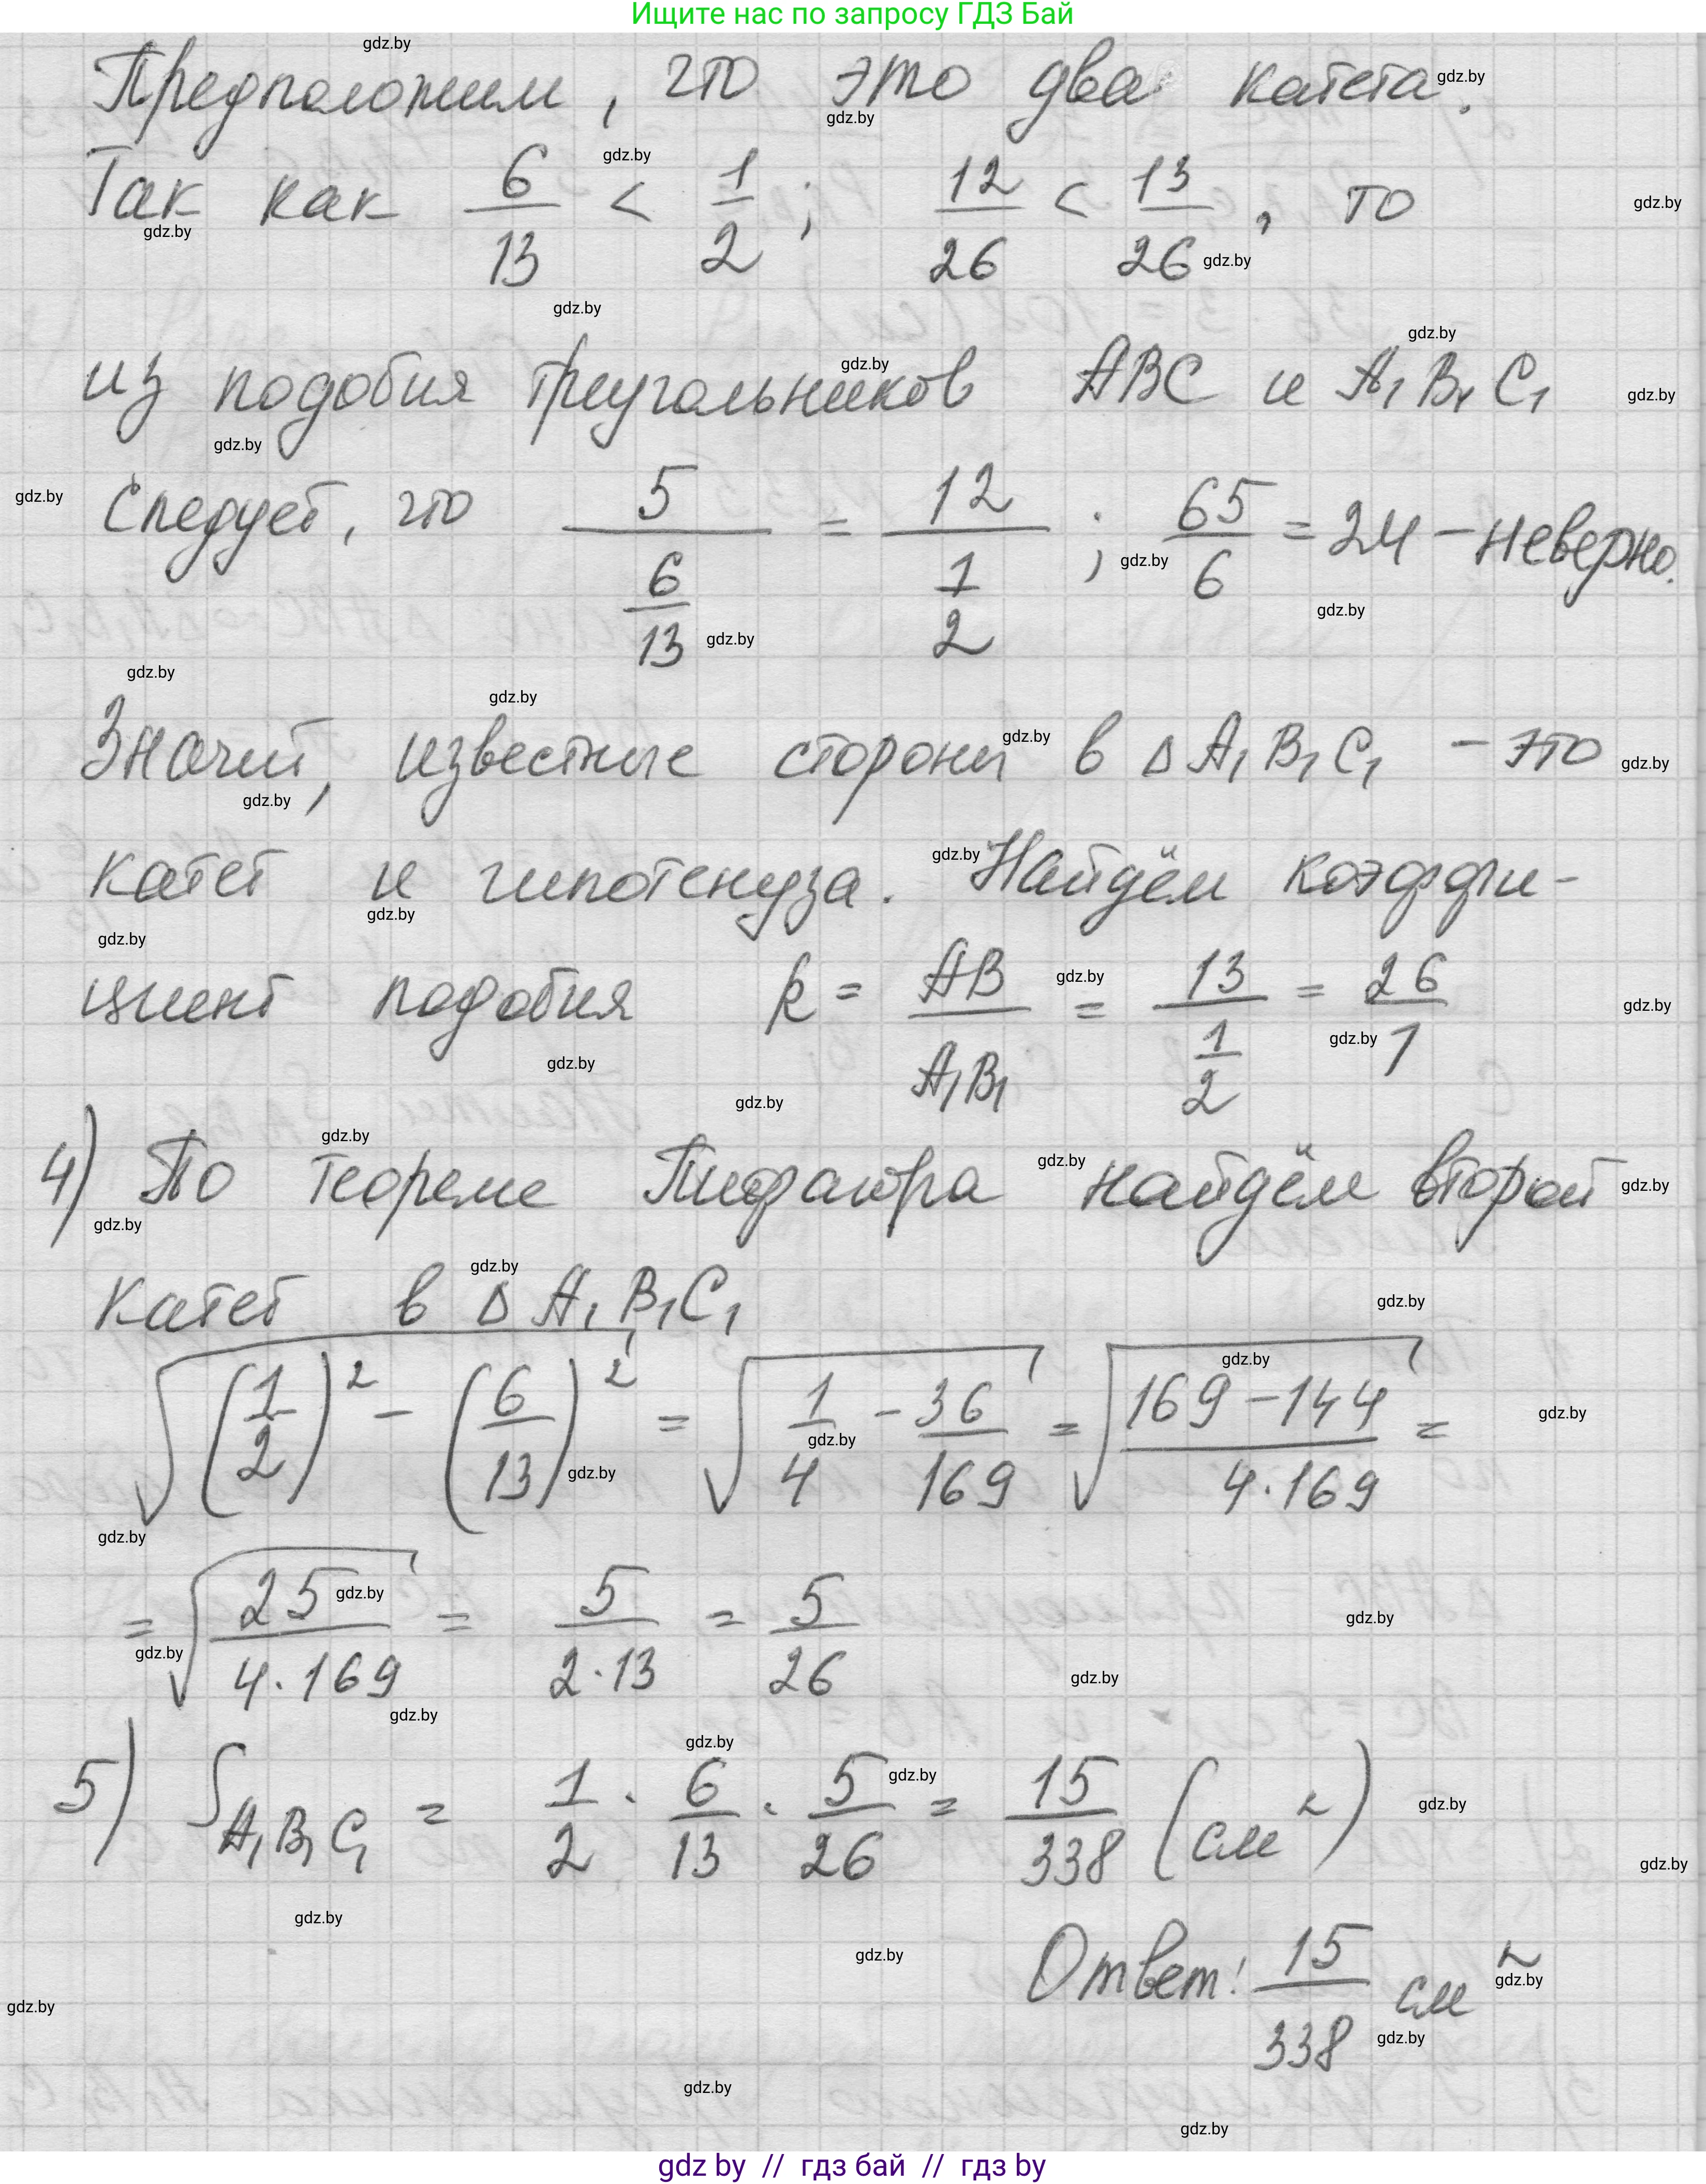 Ищите нас по запросу ГДЗ Бай
Предположим, что это два катета.
Так как 6/13 < 1/2; 12/26 < 13/26, то
из подобия треугольников ABC и A₁B₁C₁
следует, что 5/(6/13) = 12/(1/2); 65/6 = 24 – неверно.
Значит, известные стороны в ΔA₁B₁C₁ – это
катет и гипотенуза. Найдём коэффи-
циент подобия k = AB/A₁B₁ = 13/(1/2) = 26/1
4) По теореме Пифагора найдём второй
катет в ΔA₁B₁C₁
√((1/2)² – (6/13)²) = √(1/4 – 36/169) = √((169 – 144)/(4·169)) =
= √(25/(4·169)) = 5/(2·13) = 5/26
5) S A₁B₁C₁ = 1/2 · 6/13 · 5/26 = 15/338 (см²)
Ответ: 15/338 см²
gdz by // гдз бай // гдз by